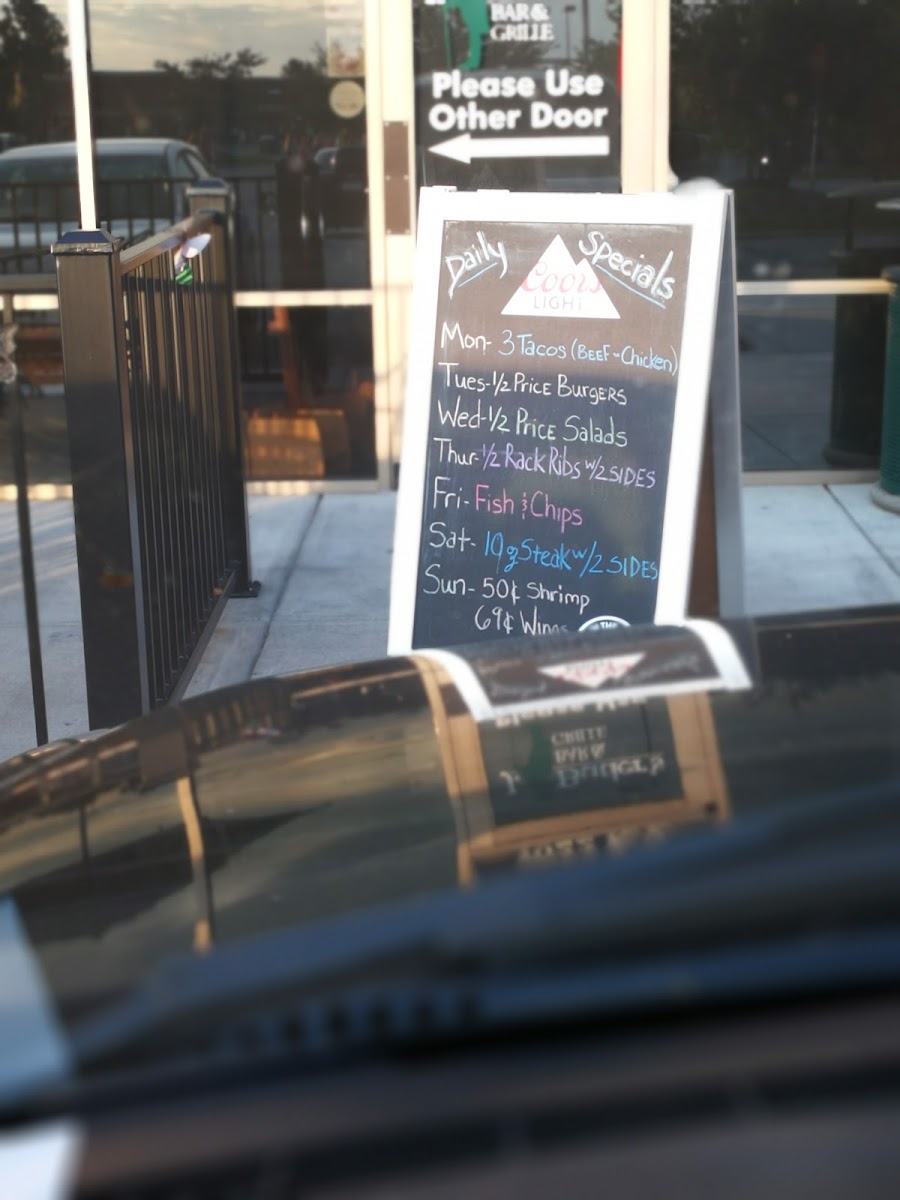 BAR &
GRILLE
Please Use
Other Door
Daily Specials
Coors
LIGHT
Mon- 3 Tacos (BEEF - Chicken)
Tues- 1/2 PRICE BURGERS
Wed- 1/2 PRICE Salads
Thur- 1/2 Rack Ribs w/2 SIDES
Fri- Fish & Chips
Sat- 10oz Steak w/2 SIDES
Sun- 50¢ Shrimp
69¢ Wings
THE